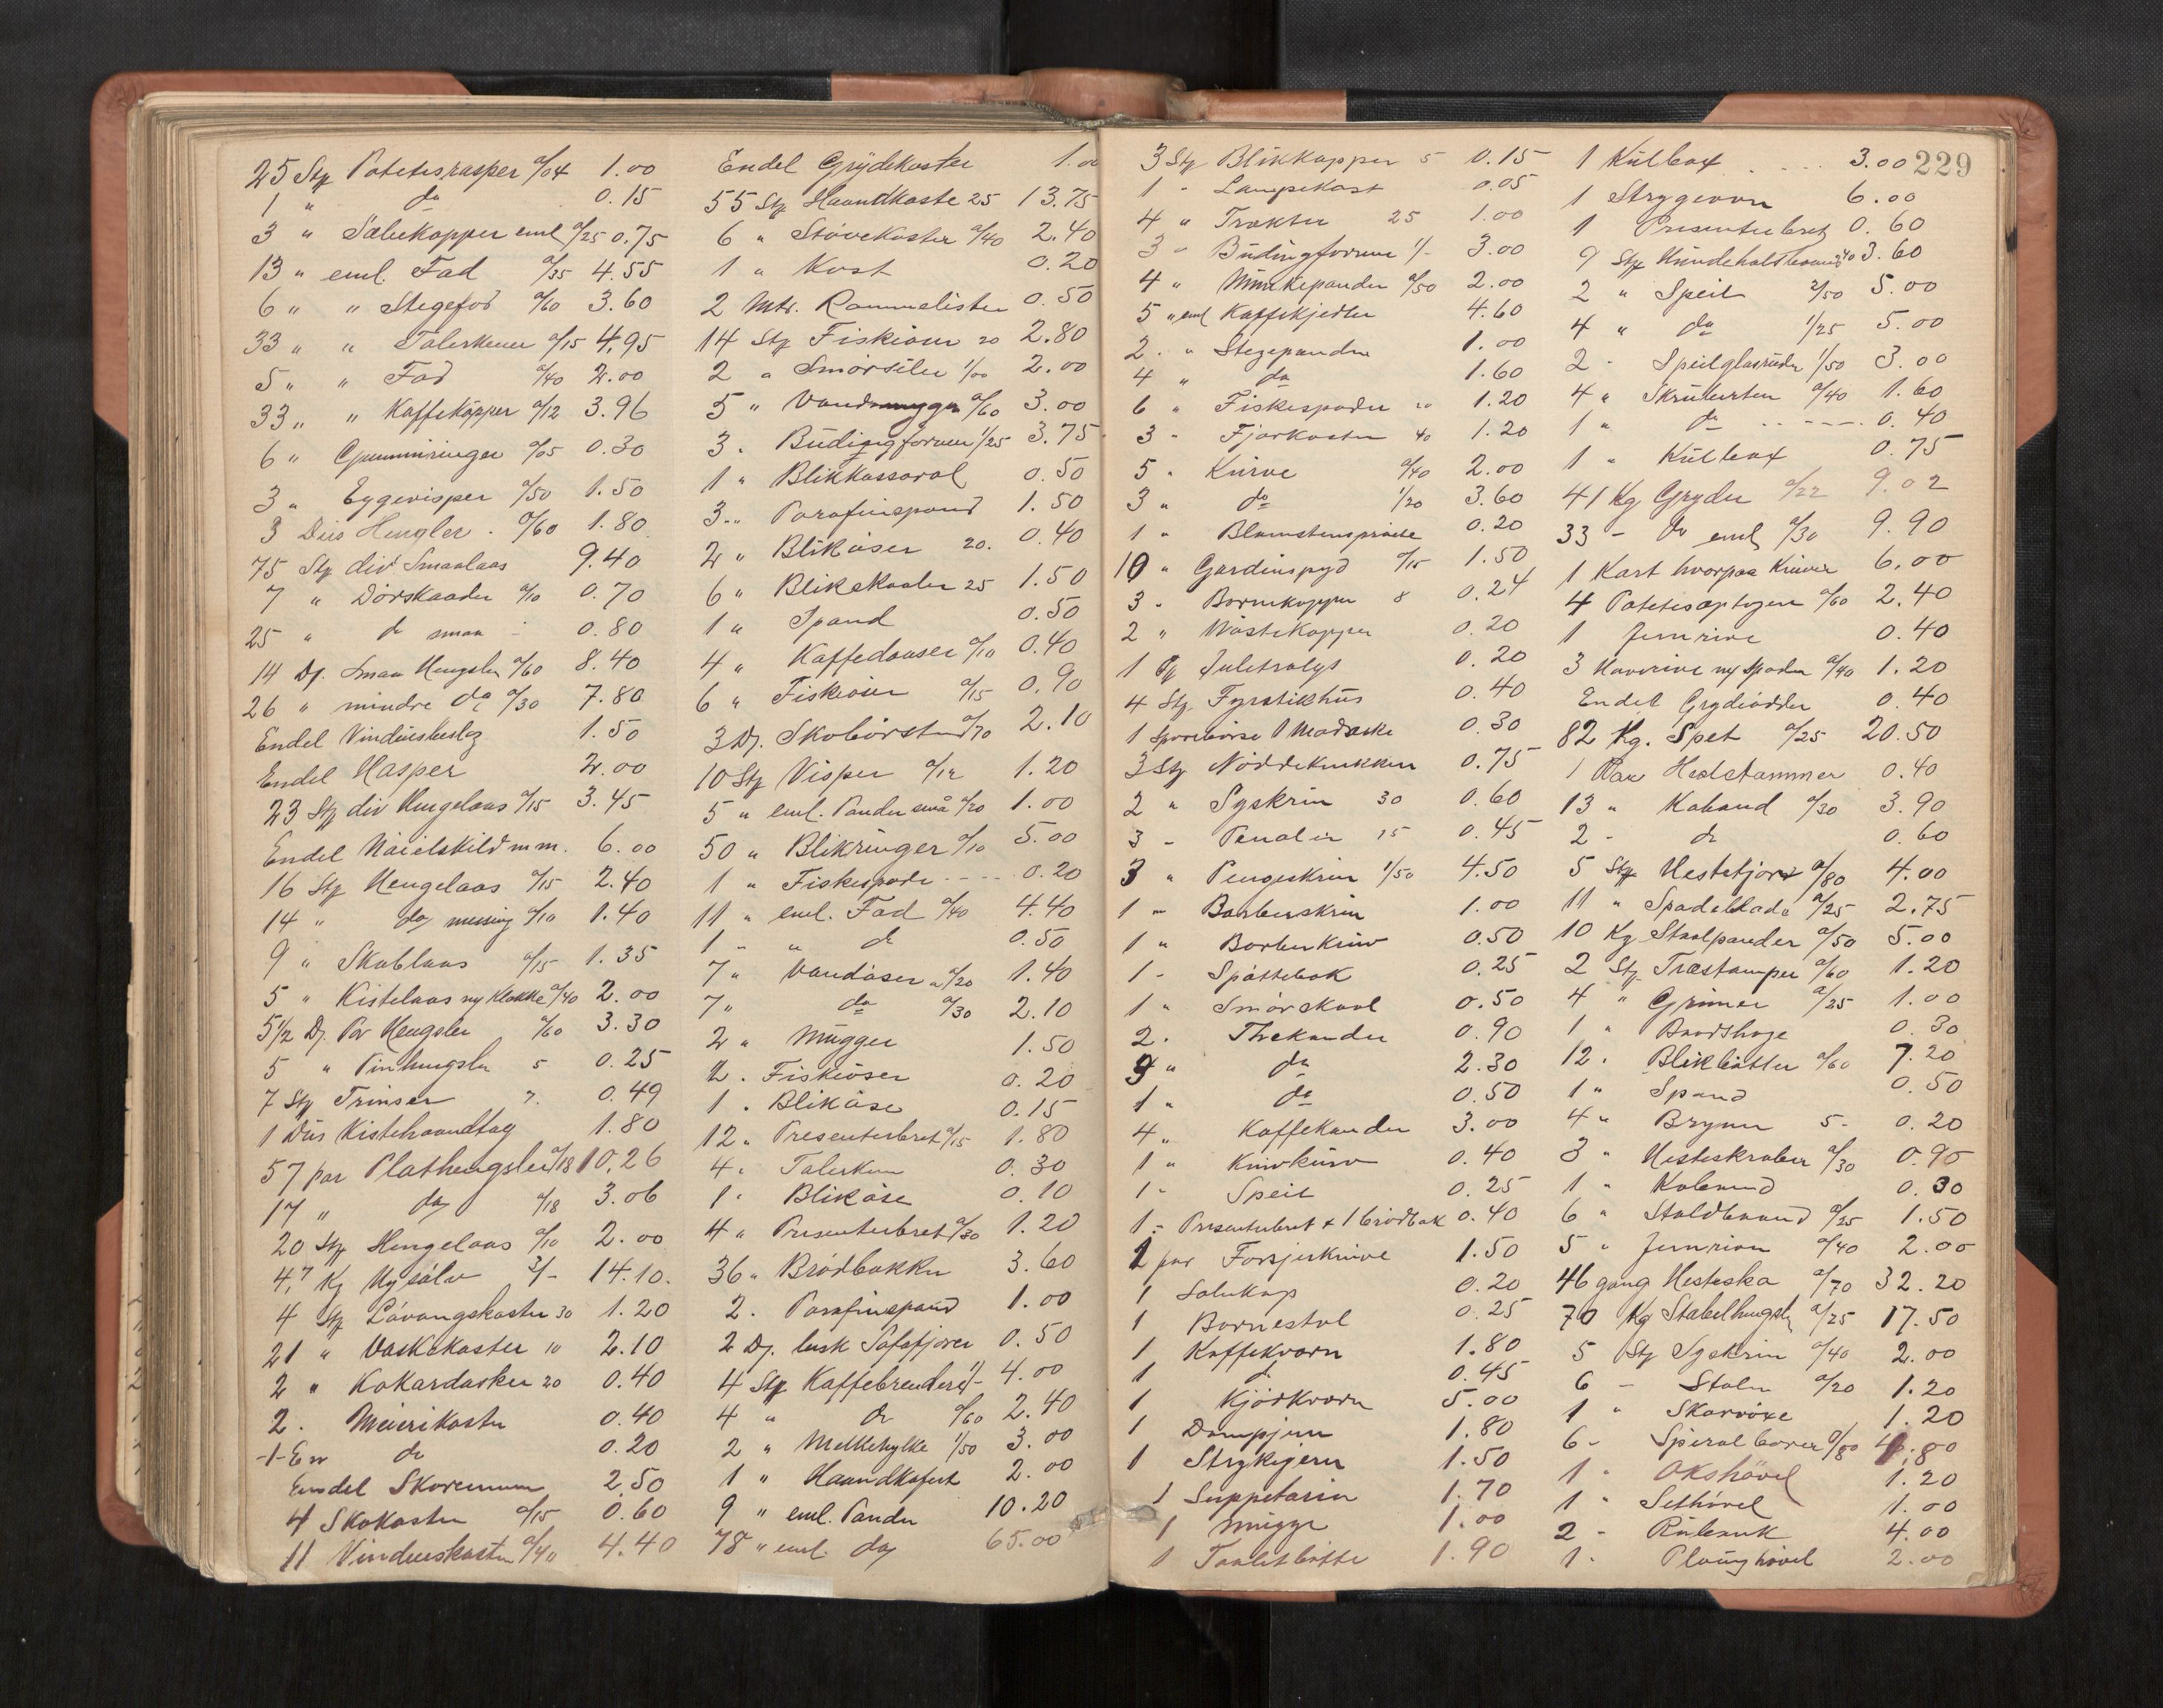 25 Stk Potetesrasper a/04 1.00
1 " do 0.15
3 " Sæbekopper eml a/25 0.75
13 " eml. Fad a/35 4.55
6 " " Stegefad a/60 3.60
33 " " Talerkener a/15 4.95
5 " " Fad a/40 2.00
33 " " Kaffekopper a/12 3.96
6 " Gummiringer a/05 0.30
3 " Eggevisper a/50 1.50
3 Dus Hengler . a/60 1.80
75 Stk div Smaalaas 9.40
7 " Dørskaader a/10 0.70
25 " do smaa 0.80
14 Dz. Smaa Hengsler a/60 8.40
26 " mindre do a/30 7.80
Endel Vinduesbeslag 1.50
Endel Hasper 2.00
23 Stk div Hengelaas a/15 3.45
Endel Nøielskild m m. 6.00
16 Stk Hengelaas a/15 2.40
14 " do messing a/10 1.40
9 " Skablaas a/15 1.35
5 " Kistelaas ny Klokke a/40 2.00
5 1/2 Dz. Par Hengsler a/60 3.30
5 " Pinhengsler 5 0.25
7 Stk Trinser 7. 0.49
1 Dus Kistehaandtag 1.80
57 par Plathengsler a/18 10.26
17 " do a/18 3.06
20 Stk Hengelaas a/10 2.00
4,7 Kg Nysølv 3/- 14.10.
4 Stk Løvangskoster 30 1.20
21 " Vaskekoster 10 2.10
2 " Kokardasker 20 0.40
2 . Meierikoster 0.40
-1- En do 0.20
Endel Skoremmer 2.50
4 Skokoster a/15 0.60
11 Vindueskoster a/40 4.40
Endel Grydekoster 1.00
55 Stk Haandkoste 25 13.75
6 " Støvekoster a/40 2.40
1 " Kost 0.20
2 Mtr. Rammelister 0.50
14 Stk Fiskeøser 20 2.80
2 " Smørsiler 1/00 2.00
5 " Vandmugger a/60 3.00
3 . Budingformer 1/25 3.75
1 " Blikkasserol 0.50
3 " Parafinspand 1.50
2 " Blikøser 20. 0.40
6 " Blikskaaler 25 1.50
1 " Spand 0.50
4 " Kaffedaaser a/10 0.40
6 " Fiskeøser a/15 0.90
3 Dz. Skobørster a/70 2.10
10 Stk Visper a/12 1.20
5 " eml. Pander små a/20 1.00
50 " Blikringer a/10 5.00
1 " Fiskespade 0.20
11 " eml. Fad a/40 4.40
1 " " do 0.50
7 " Vandøser a/20 1.40
7 " do a/30 2.10
2 " Mugger 1.50
2 . Fiskeøser 0.20
1 . Blikøse 0.15
12 " Presenterbret a/15 1.80
4 " Talerkener 0.30
1 " Blikøse 0.10
4 " Presenterbret a/30 1.20
36 " Brødbakker 3.60
2 . Parafinspand 1.00
2 Dz. lusk Sofafjører 0.50
4 Stk Kaffebrendere 1/- 4.00
4 " do a/60 2.40
2 " Melkehylke 1/50 3.00
1 " Haandkofert 2.00
9 " eml. Pander 10.20
78 " eml. do 65.00
229
3 Stk Blikkopper 5 0.15
1 " Lampekost 0.05
4 " Trakter 25 1.00
3 " Budingforme 1/- 3.00
4 " Munkepander a/50 2.00
5 " eml Kaffekjedler 4.60
2 . " Stegepander 1.00
4 " do 1.60
6 " Fiskespader 20 1.20
3 " Fjærkoster 40 1.20
5 " Kurve a/40 2.00
3 " do 1/20 3.60
1 " Blomstersprøite 0.20
10 " Gardinspyd a/15 1.50
3 . Bornekopper 8 0.24
2 " Wastekopper 0.20
1 Pk Juletrelys 0.20
4 Stk Fyrstikhus 0.40
1 Sparebørse 1 Madæske 0.30
3 Stk Nøddeknekker 0.75
2 " Syskrin 30 0.60
3 " Penaler 15 0.45
3 " Pengeskrin 1/50 4.50
1 " Barberskrin 1.00
1 " Barberkniv 0.50
1 " Spøttebak 0.25
1 " Smørskaal 0.50
2 . Thekander 0.90
9 " do 2.30
1 " do 0.50
4 " Kaffekander 3.00
1 " Knivkurv 0.40
1 " Speil 0.25
1 " Presenterbret & 1 brødbak 0.40
2 par Forsjerknive 1.50
1 Salukop 0.20
1 Bornestol 0.25
1 Kaffekvarn 1.80
1 do 0.45
1 Kjødkvarn 5.00
1 Dampjern 1.80
1 Strykejern 1.50
1 Suppeterin 1.70
1 Mugge 1.00
1 Toaletbøtte 1.90
1 Kulbox 3.00
1 Strygeovn 6.00
1 Presenterbret 0.60
9 Stk Hundehalsbaand a/40 3.60
2 " Speil 2/50 5.00
4 " do 1/25 5.00
2 " Speilglasruder 1/50 3.00
4 " Skrubørster a/40 1.60
1 " do 0.40
1 " Kulbox 0.75
41 Kg Gryder a/22 9.02
33 - do eml a/30 9.90
1 Kart hvorpaa Kniver 6.00
4 Potetesoptagere a/60 2.40
1 Jernrive 0.40
3 Haverive ny Spader a/40 1.20
Endel Grydiødder 0.40
82 Kg. Spet a/25 20.50
1 Par Hedstammer 0.40
13 " Koband a/30 3.90
2 - do 0.60
5 Stk Hestefjør a/80 4.00
11 " Spadeblade a/25 2.75
10 Kg Staalpander a/50 5.00
2 Stk Træstamper a/60 1.20
4 " Grimer a/25 1.00
1 " Baadshage 0.30
12 . Blikbøtter a/60 7.20
1 " Spand 0.50
4 " Bryner 5- 0.20
3 " Hesteskraber a/30 0.90
1 " Kobaand 0.30
6 " Staldbaand a/25 1.50
5 " Jernriver a/40 2.00
46 gang Hestesko a/70 32.20
70 Kg Stabelhengsler a/25 17.50
5 Stk Syskrin a/40 2.00
6 - Stoler a/20 1.20
1 " Skarøxe 1.20
6 - Spiralborer a/80 4.80
1 " Okshøvel 1.20
1 " Sethøvel 1.00
2 - Rubank 4.00
1 . Plaughøvel 2.00